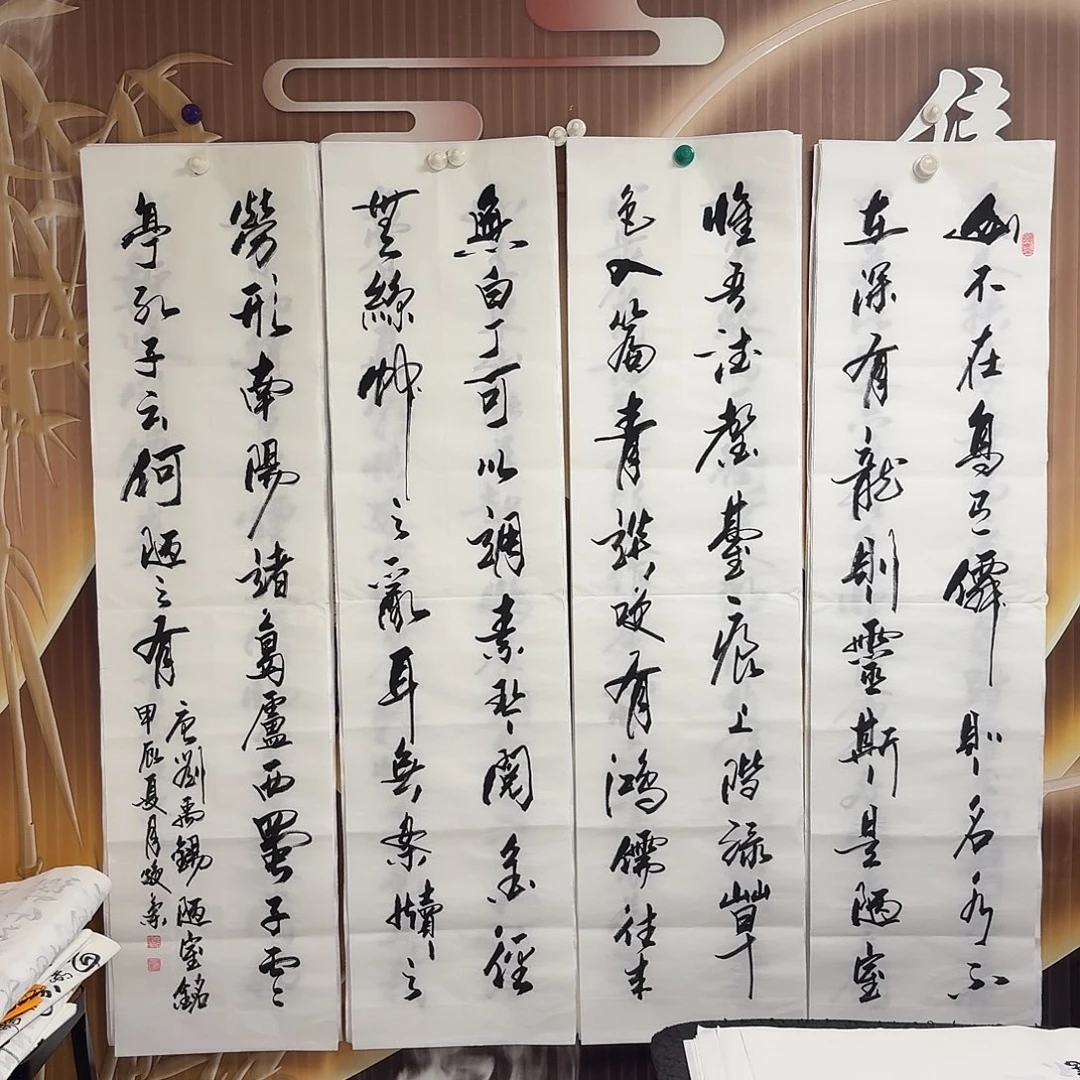 山不在高有僊則名水不
在深有龍則靈斯是陋室
惟吾德馨臺痕上階綠草
色入簾青談笑有鴻儒往来
無白丁可以調素琴閱金經
無絲竹之亂耳無案牘之
勞形南陽諸葛廬西蜀子雲
亭孔子云何陋之有
唐劉禹錫陋室銘
甲辰夏月